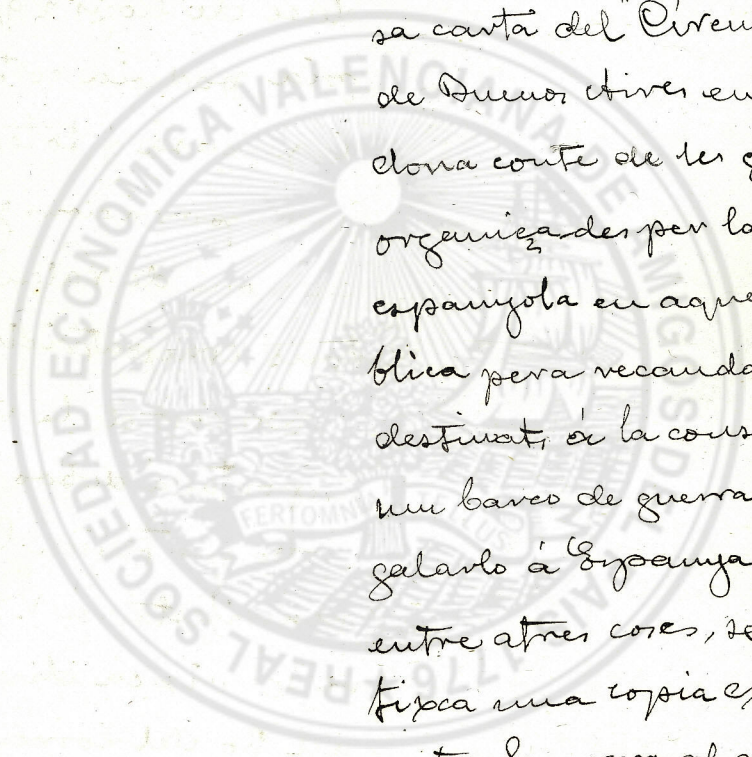 sa carta del "Circu
de Buenos Aires en
dona conte de les g
organiçades per la
espanyola en aque
blica pera recauda
destinats á la cons
un barco de guerra
galarlo á Espanya
entre atres coses, se
tixca una copia
REAL SOCIEDAD ECONOMICA VALENCIANA DE AMIGOS DEL PAIS 1776